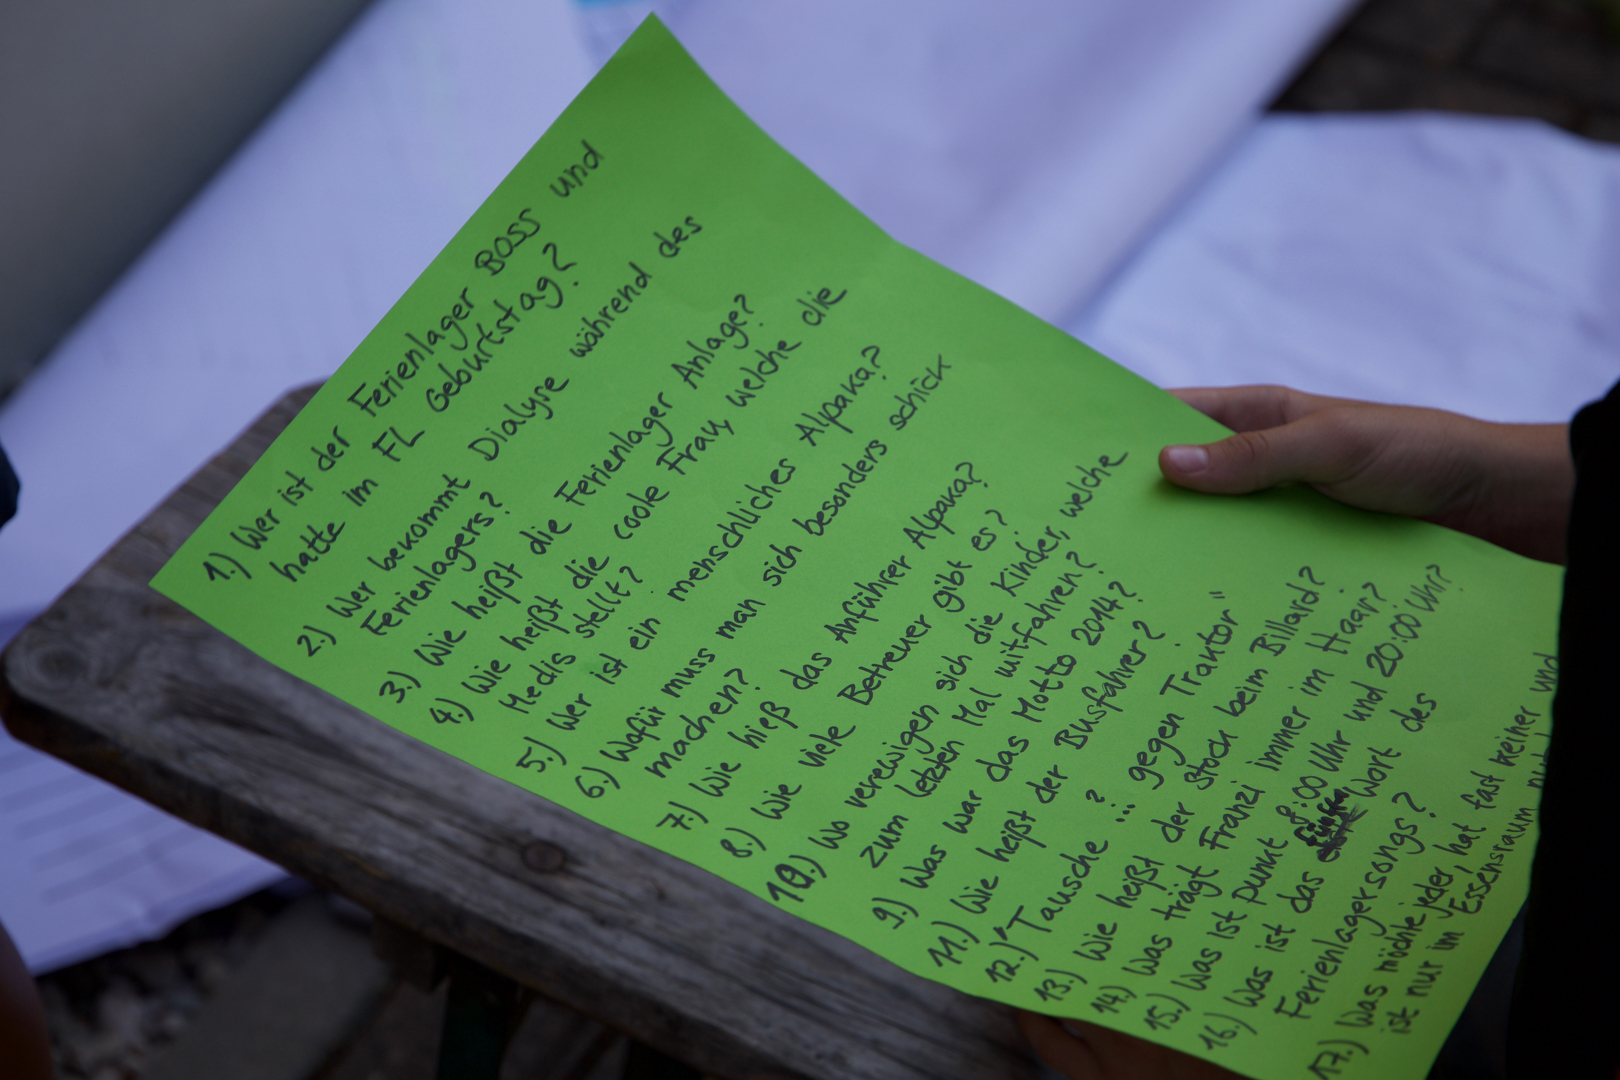 1.) Wer ist der Ferienlager BOSS und
hatte im FL Geburtstag?
2.) Wer bekommt Dialyse während des
Ferienlagers?
3.) Wie heißt die Ferienlager Anlage?
4.) Wie heißt die coole Frau, welche die
Medis stellt?
5.) Wer ist ein menschliches Alpaka?
6.) Wofür muss man sich besonders schick
machen?
7.) Wie hieß das Anführer Alpaka?
8.) Wie viele Betreuer gibt es?
10.) Wo verewigen sich die Kinder, welche
zum letzten Mal mitfahren?
9.) Was war das Motto 2014?
11.) Wie heißt der Busfahrer?
12.) "Tausche ...? gegen Traktor"
13.) Wie heißt der Stock beim Billard?
14.) Was trägt Franzi immer im Haar?
15.) Was ist punkt 8:00 Uhr und 20:00 Uhr?
16.) Was ist das Wort des
Ferienlagersongs?
17.) Was möchte jeder, hat fast keiner und
ist nur im Essensraum